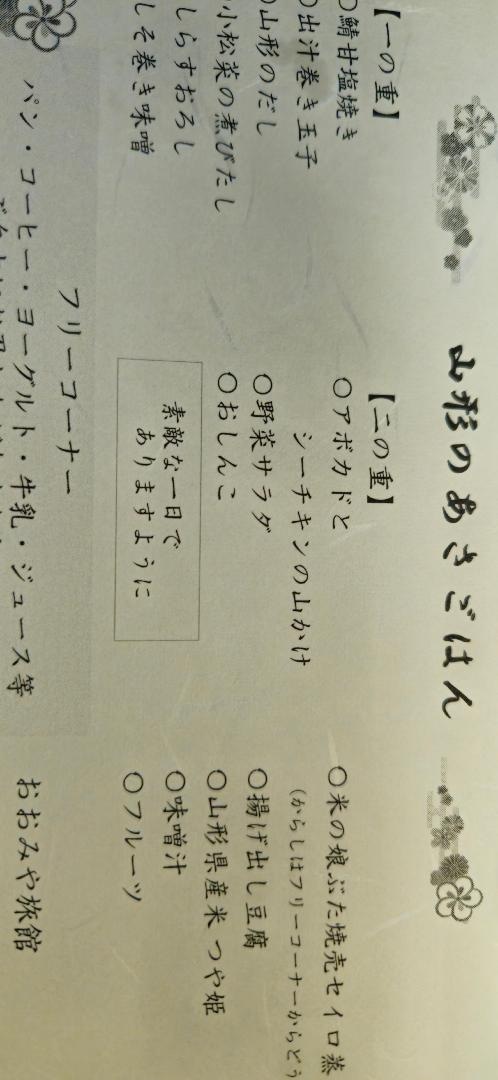 山形のあさごはん
【一の重】
○鯖甘塩焼き
○出汁巻き玉子
○山形のだし
小松菜の煮びたし
しらすおろし
しそ巻き味噌
【二の重】
○アボカドと
シーチキンの山かけ
○野菜サラダ
○おしんこ
素敵な一日で
ありますように
○米の娘ぶた焼売セイロ蒸
(からしはフリーコーナーからどう
○揚げ出し豆腐
○山形県産米 つや姫
○味噌汁
○フルーツ
フリーコーナー
パン・コーヒー・ヨーグルト・牛乳・ジュース等
おおみや旅館